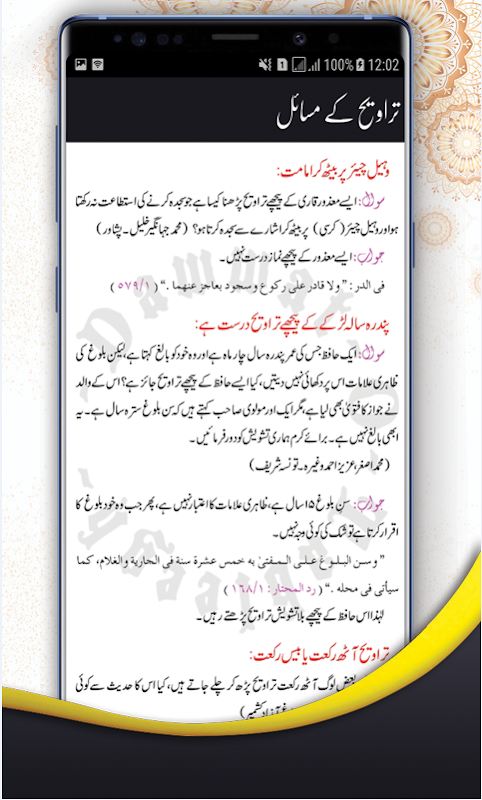 100% 12:02
تراویح کے مسائل
وہیل چیئر پر بیٹھ کر امامت:
سوال: ایسے معذور قاری کے پیچھے تراویح پڑھنا کیسا ہے جو سجدہ کرنے کی استطاعت نہ رکھتا
ہو اور وہیل چیئر (کرسی) پر بیٹھ کر اشارے سے سجدہ کرتا ہو؟ (محمد جہانگیر خلیل۔ پشاور)
جواب: ایسے معذور کے پیچھے نماز درست نہیں۔
فی الدر: "ولا قادر علی رکوع وسجود بعاجز عنهما ." (۵۷۹/۱)
پندرہ سالہ لڑکے کے پیچھے تراویح درست ہے:
سوال: ایک حافظ جس کی عمر پندرہ سال چار ماہ ہے اور وہ خود کو بالغ کہتا ہے، لیکن بلوغ کی
ظاہری علامات اس پر دکھائی نہیں دیتیں، کیا ایسے حافظ کے پیچھے تراویح جائز ہے؟ اس کے والد
نے جواز کا فتویٰ بھی لیا ہے، مگر ایک اور مولوی صاحب کہتے ہیں کہ سن بلوغ سترہ سال ہے۔ یہ
ابھی بالغ نہیں ہے۔ برائے کرم ہماری تشویش کو دور فرمائیں۔
(محمد اصغر، عزیز احمد وغیرہ۔ تونسہ شریف)
جواب: سن بلوغ ۱۵ سال ہے، ظاہری علامات کا اعتبار نہیں ہے، پھر جب وہ خود بلوغ کا
اقرار کرتا ہے تو شک کی کوئی وجہ نہیں۔
"وسن البلوغ علی المفتیٰ به خمس عشرة سنة فی الجارية والغلام، كما
سیأتی فی محله ." (رد المحتار: ۱۶۸/۱)
لہٰذا اس حافظ کے پیچھے بلا تشویش تراویح پڑھتے رہیں۔
تراویح آٹھ رکعت یا بیس رکعت:
بعض لوگ آٹھ رکعت تراویح پڑھ کر چلے جاتے ہیں، کیا اس کا حدیث سے کوئی
آزاد کشمیر)